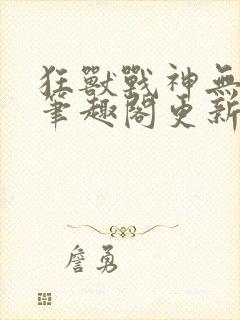 狂獸戰神無
筆趣閣更新
詹勇